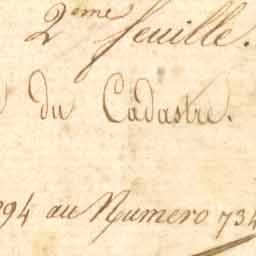 2ème feuille.
du Cadastre.
94 au Numero 734